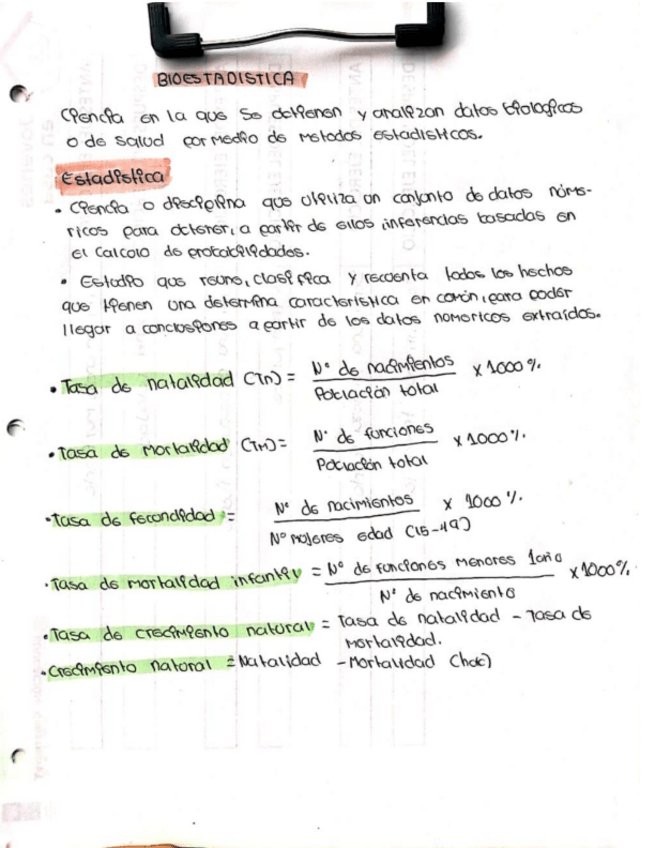 BIOESTADISTICA
Ciencia en la que se obtienen y analizan datos biologicos
o de salud por medio de metodos estadisticos.
Estadistica
• Ciencia o disciplina que utiliza un conjunto de datos núme-
ricos para obtener, a partir de ellos, inferencias basadas en
el calculo de probabilidades.
• Estudio que reune, clasifica y recuenta todos los hechos
que tienen una determina caracteristica en común, para poder
llegar a conclusiones a partir de los datos numericos extraídos.
• Tasa de natalidad (Tn) = Nº de nacimientos x 1000 %.
Población total
• Tasa de mortalidad (TM) = Nº de funciones x 1000 %.
Población total
• Tasa de fecondidad = Nº de nacimientos x 1000 %.
Nº mujeres edad (15-49)
• Tasa de mortalidad infantil = Nº de funciones menores 1 año x 1000 %.
Nº de nacimiento
• Tasa de crecimiento natural = Tasa de natalidad - Tasa de
mortalidad.
• Crecimiento natural = Natalidad - Mortalidad